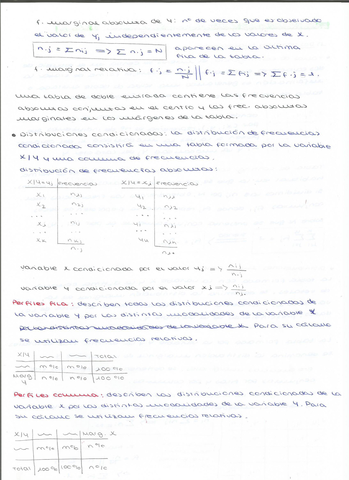 f. marginal absoluta de Y: nº de veces que es observado
el valor de Yj independientemente de los valores de X.
n.j = Σ nij => Σ n.j = N aparecen en la última
fila de la tabla.
f. marginal relativa: f.j = n.j/N || f.j = Σ fij => Σ f.j = 1.
Una tabla de doble entrada contiene las frecuencias
absolutas conjuntas en el centro y las frec. absolutas
marginales en los márgenes de la tabla.
• Distribuciones condicionadas: la distribución de frecuencias
condicionada consistirá en una tabla formada por la variable
X/Y y una columna de frecuencias.
distribución de frecuencias absolutas:
X/Y=yj frecuencias X/Y=xj frecuencias
x1 n1j y1 nj1
x2 n2j y2 nj2
... ... ... ...
xi nij yj
... ... ... ...
xk nkj
n.j
variable X condicionada por el valor yj => nij/n.j
variable Y condicionada por el valor xj =>
Perfiles fila: describen todas las distribuciones condicionadas de
la variable Y por las distintas modalidades de la variable X
Para su cálculo
se utilizan frecuencias relativas.
X/Y total
n% n% 100%
marg Y n% n% 100%
Perfiles columna: describen las distribuciones condicionadas de la
variable X por las distintas modalidades de la variable Y. Para
su cálculo se utilizan frecuencias relativas.
X/Y marg X
n% n% n%
total 100% 100% n%